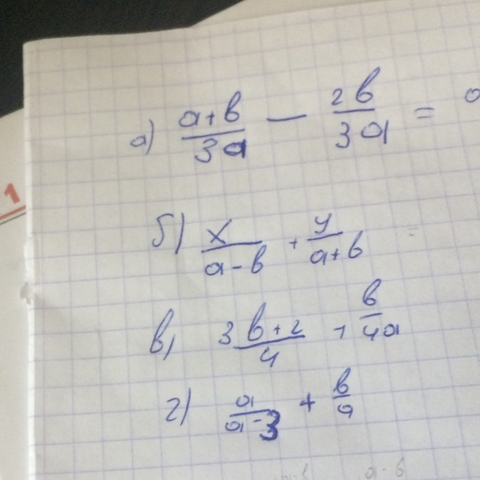 а) (a+b)/(3a) − (2b)/(3a) =
б) x/(a-b) + y/(a+b)
в) (3b+2)/4 + b/(4a)
г) a/(a-3) + b/a
1